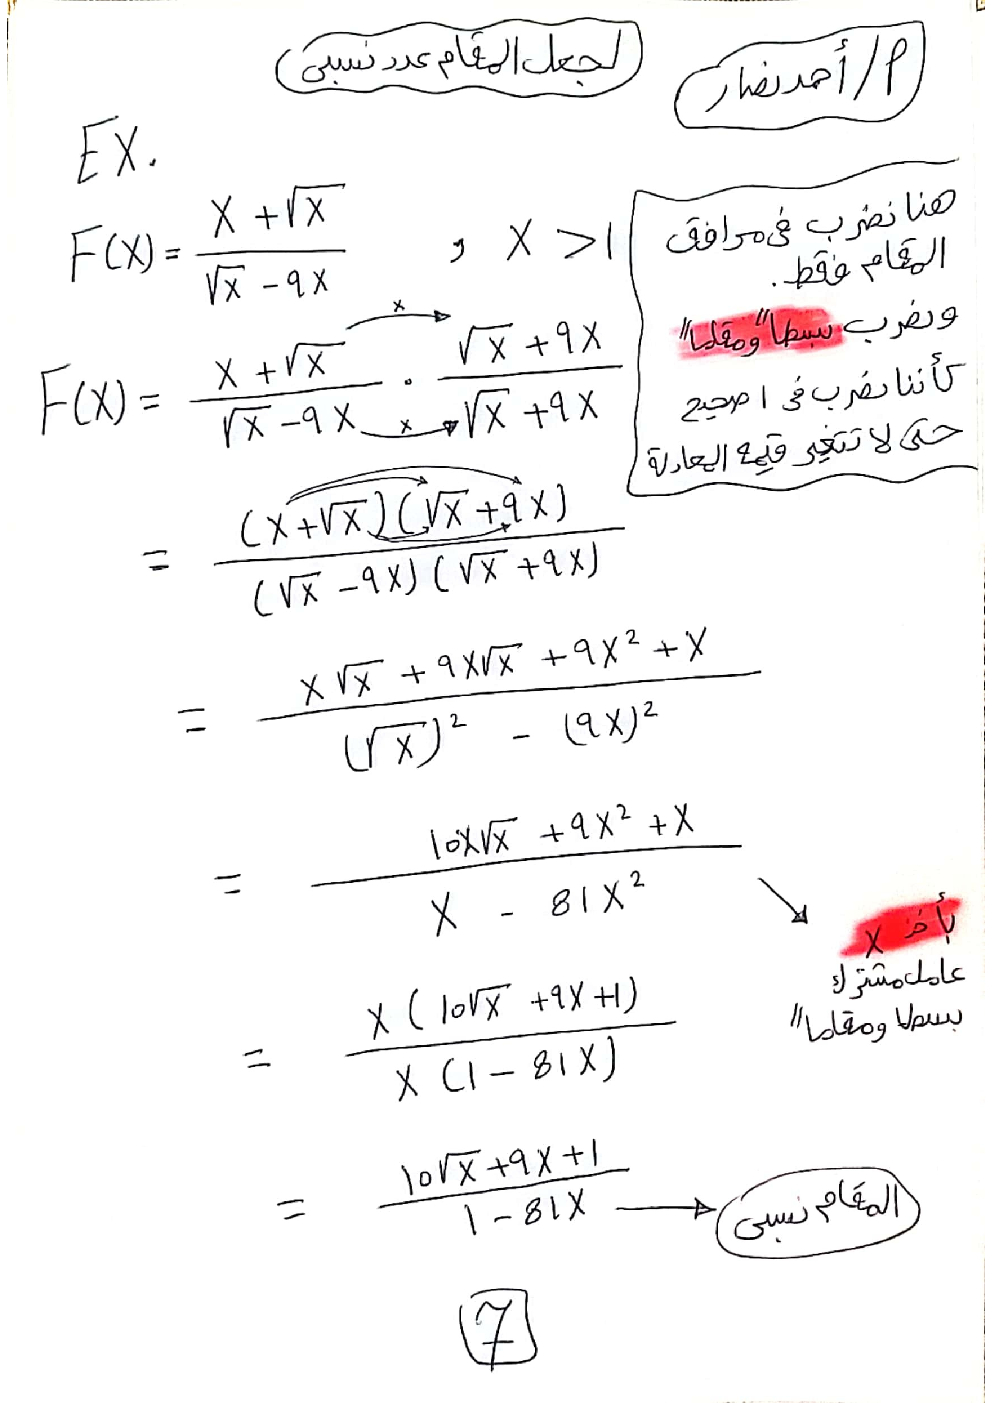 لجعل المقام عدد نسبي
م/ أحمد نصار
EX.
F(X) = (X + √X) / (√X - 9X) , X > 1
هنا نضرب في مرافق
المقام فقط.
ونضرب بسطا" ومقاما"
كأننا نضرب في ا صحيح
حتى لا تتغير قيمة المعادلة
F(X) = (X + √X) / (√X - 9X) . (√X + 9X) / (√X + 9X)
= (X + √X)(√X + 9X) / (√X - 9X)(√X + 9X)
= (X√X + 9X√X + 9X² + X) / ((√X)² - (9X)²)
= (10X√X + 9X² + X) / (X - 81X²)
بأخذ X
عامل مشترك
بسطا ومقاما"
= X(10√X + 9X + 1) / X(1 - 81X)
= (10√X + 9X + 1) / (1 - 81X)
المقام نسبي
7